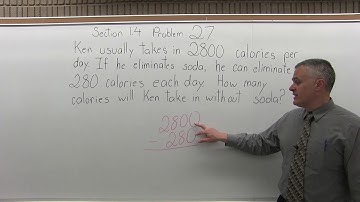 Section 1.4 Problem 27
Ken usually takes in 2800 calories per
day. If he eliminates soda, he can eliminate
280 calories each day. How many
calories will Ken take in without soda?
2800
- 280